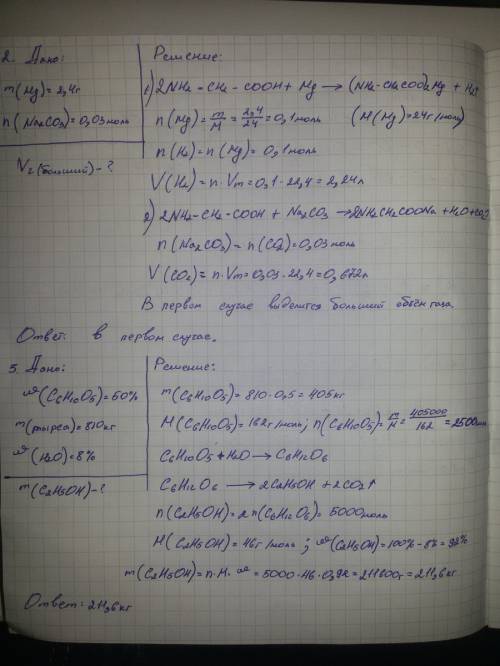 2. Дано:
m(Mg)=2,4г
n(Na2CO3)=0,03моль
V2(больший)-?
Решение:
1) 2NH2-CH2-COOH+Mg→(NH2-CH2COO)2Mg + H2↑
n(Mg)=m/M=2,4/24=0,1моль (M(Mg)=24г/моль)
n(H2)=n(Mg)=0,1моль
V(H2)=n·Vm=0,1·22,4=2,24л
2) 2NH2-CH2-COOH + Na2CO3→2NH2CH2COONa+H2O+CO2↑
n(Na2CO3)=n(CO2)=0,03моль
V(CO2)=n·Vm=0,03·22,4=0,672л
В первом случае выделится больший объем газа.
Ответ: в первом случае.
3. Дано:
ω(C6H10O5)=50%
m(маиса)=810кг
ω(H2O)=8%
m(C2H5OH)-?
Решение:
m(C6H10O5)=810·0,5=405кг
M(C6H10O5)=162г/моль; n(C6H10O5)=m/M=405000/162=2500моль
C6H10O5+H2O→C6H12O6
C6H12O6→2C2H5OH+2CO2↑
n(C2H5OH)=2n(C6H12O6)=5000моль
M(C2H5OH)=46г/моль; ω(C2H5OH)=100%-8%=92%
m(C2H5OH)=n·M·ω=5000·46·0,92=211600г=211,6кг
Ответ: 211,6кг